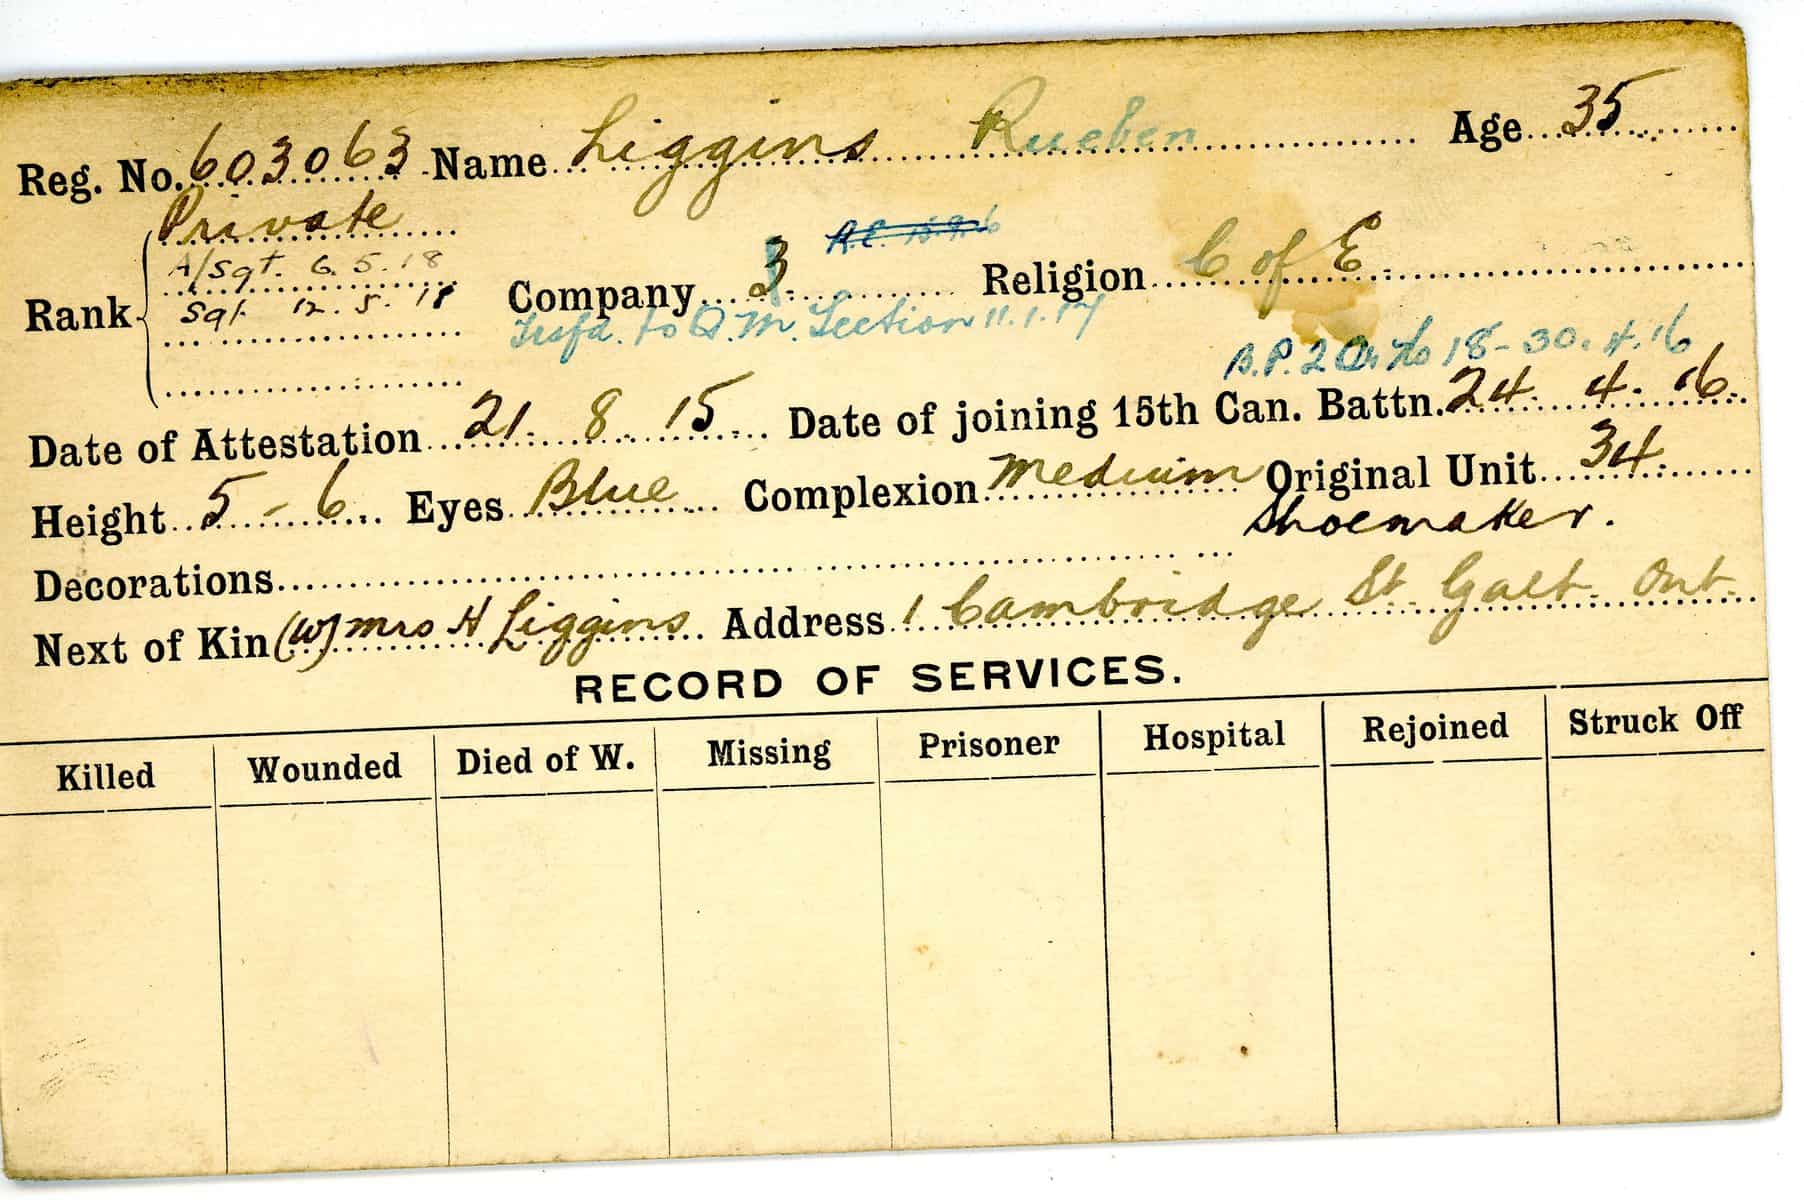 Reg. No. 603063 Name Liggins Rueben Age 35
Private
A/Sgt. 6.5.18
Rank Sgt. 12.5.18 Company 3 Religion C of E.
Trsfd. to Q.M. Section 11.1.17
B.P. 2 Or. No 18-30.4.16
Date of Attestation 21. 8. 15 Date of joining 15th Can. Battn. 24. 4. 16.
Height 5-6 Eyes Blue Complexion Medium Original Unit 34.
Shoemaker.
Decorations
Next of Kin (W) Mrs H Liggins Address 1 Cambridge St Galt Ont.
RECORD OF SERVICES.
Killed Wounded Died of W. Missing Prisoner Hospital Rejoined Struck Off